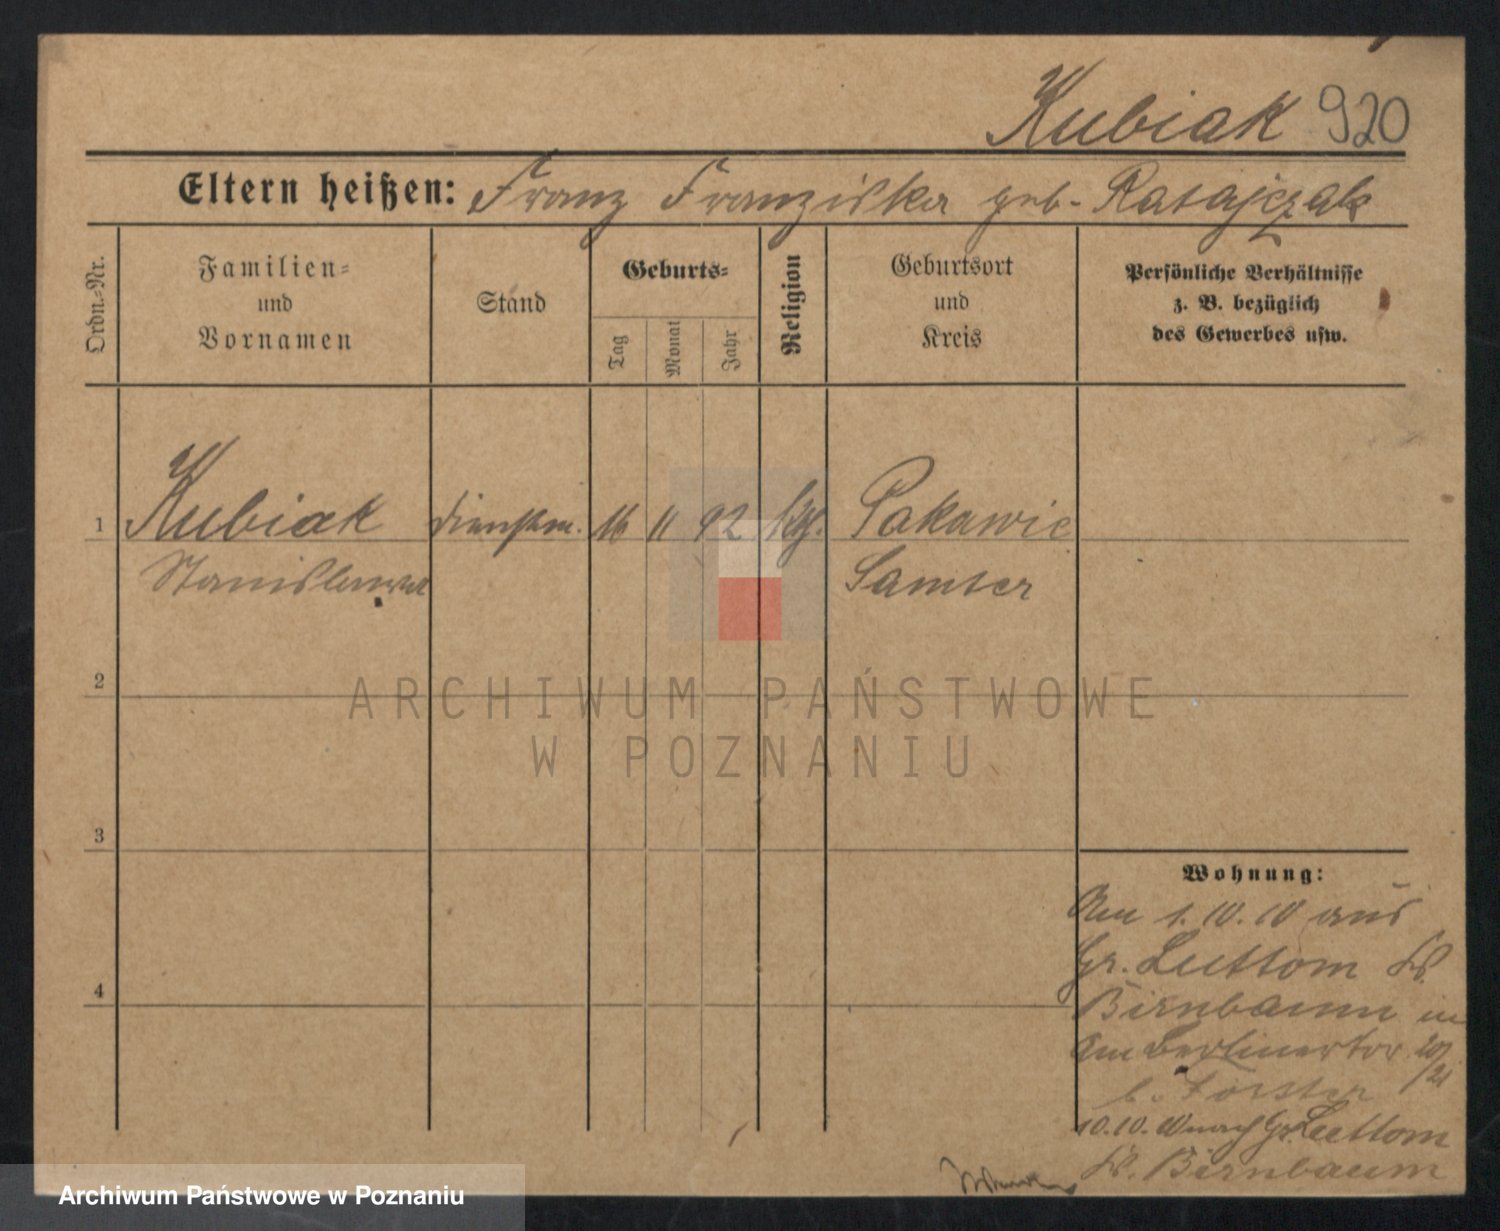 Kubiak 920
Eltern heißen: Franz Franziska geb. Ratajczak
Ordn.-Nr.
Familien-
und
Vornamen
Stand
Geburts-
Tag
Monat
Jahr
Religion
Geburtsort
und
Kreis
Persönliche Verhältnisse
z. B. bezüglich
des Gewerbes usw.
1 Kubiak Dienstm. 16 11 92 kth. Pakawie
Stanislawa Samter
2
3
4
Wohnung:
Am 1.10.10 aus
Gr. Luttom Kr.
Birnbaum in
Am Berlinertor 20/21
b. Förster
10.10.10 nach Gr. Luttom
Kr. Birnbaum
ARCHIWUM PAŃSTWOWE
W POZNANIU
Archiwum Państwowe w Poznaniu